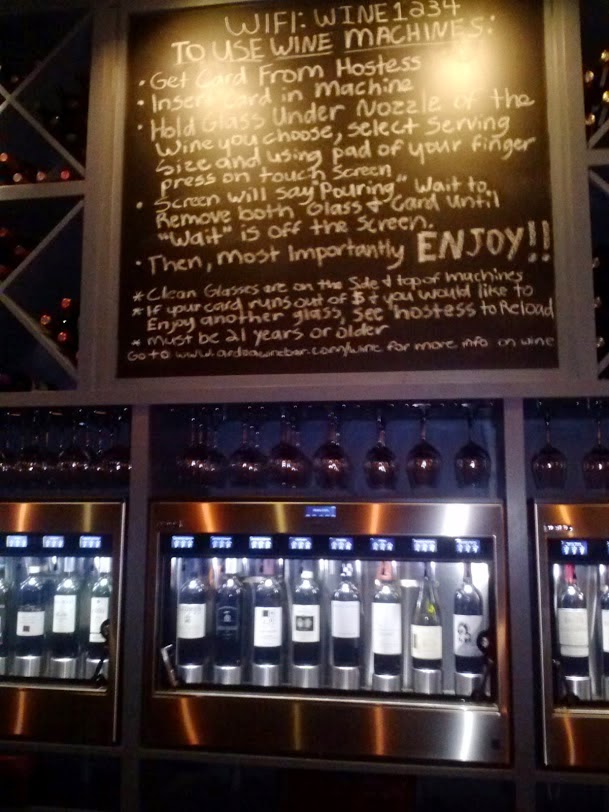 WIFI: WINE1234
TO USE WINE MACHINES:
• Get Card From Hostess
• Insert Card in Machine
• Hold Glass Under Nozzle of the
Wine you choose, select Serving
Size and using pad of your finger
press on touch screen
• Screen will say "Pouring" Wait to
Remove both Glass & Card until
"Wait" is off the screen.
• Then, most Importantly ENJOY!!
* Clean Glasses are on the Side & top of machines
* If your card runs out of $ & you would like to
Enjoy another glass, see hostess to Reload
* must be 21 years or older
Go to www.ardoawinebar.com/wine for more info on wine